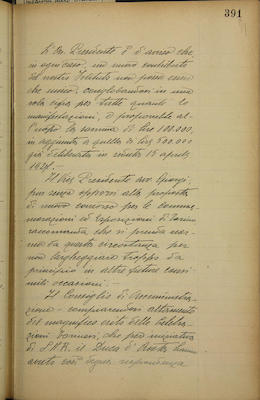 391
L'On. Presidente è d'avviso che
in ogni caso, un nuovo contributo
del nostro Istituto non possa essere
che unico, conglobandosi in una
sola cifra per tutte quante le
manifestazioni, e proponibile al-
l'uopo la somma di Lire 100.000,
in aggiunta a quella di Lire 500.000
già deliberata in seduta 18 aprile
Il Vice Presidente avv.
pur senza opporsi alla proposta
di nuovo concorso per le comme-
morazioni ed esposizioni di Torino
raccomanda che si prenda nor-
ma da questa circostanza per
non largheggiare troppo da
principio in altre future consi-
mili occasioni. -
Il Consiglio di Amministra-
zione - compiacendosi altamente
del magnifico esito delle celebra-
zioni Torinesi, che per iniziativa
di S.A.R. il Duca d'Aosta hanno
avuto così degna rispondenza